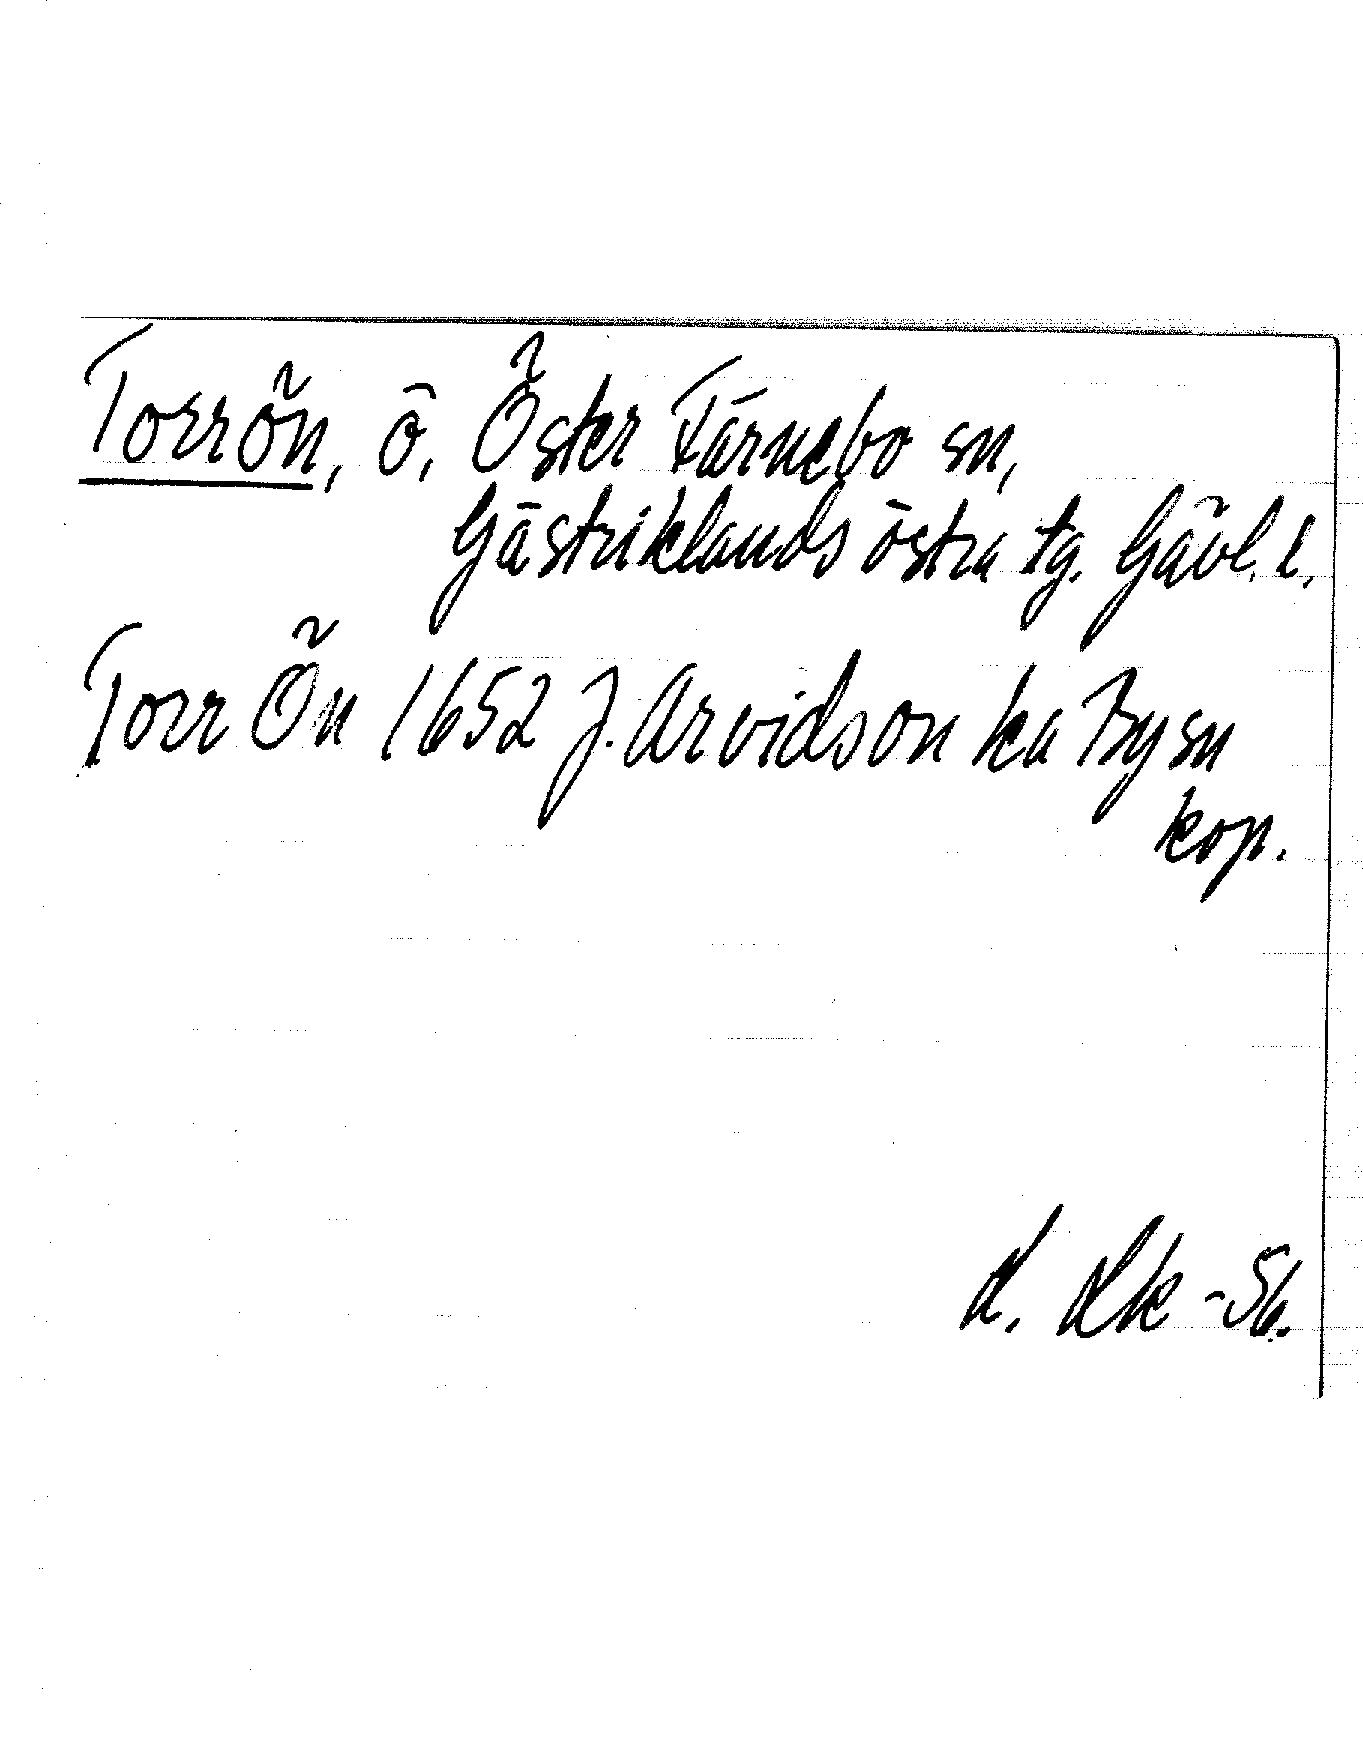 Torrön, ö, Öster Färnebo sn,
Gästriklands östra tg. Gävl. l.
Torr Ön 1652 J. Arvidson ka By sn
kop.
-56.